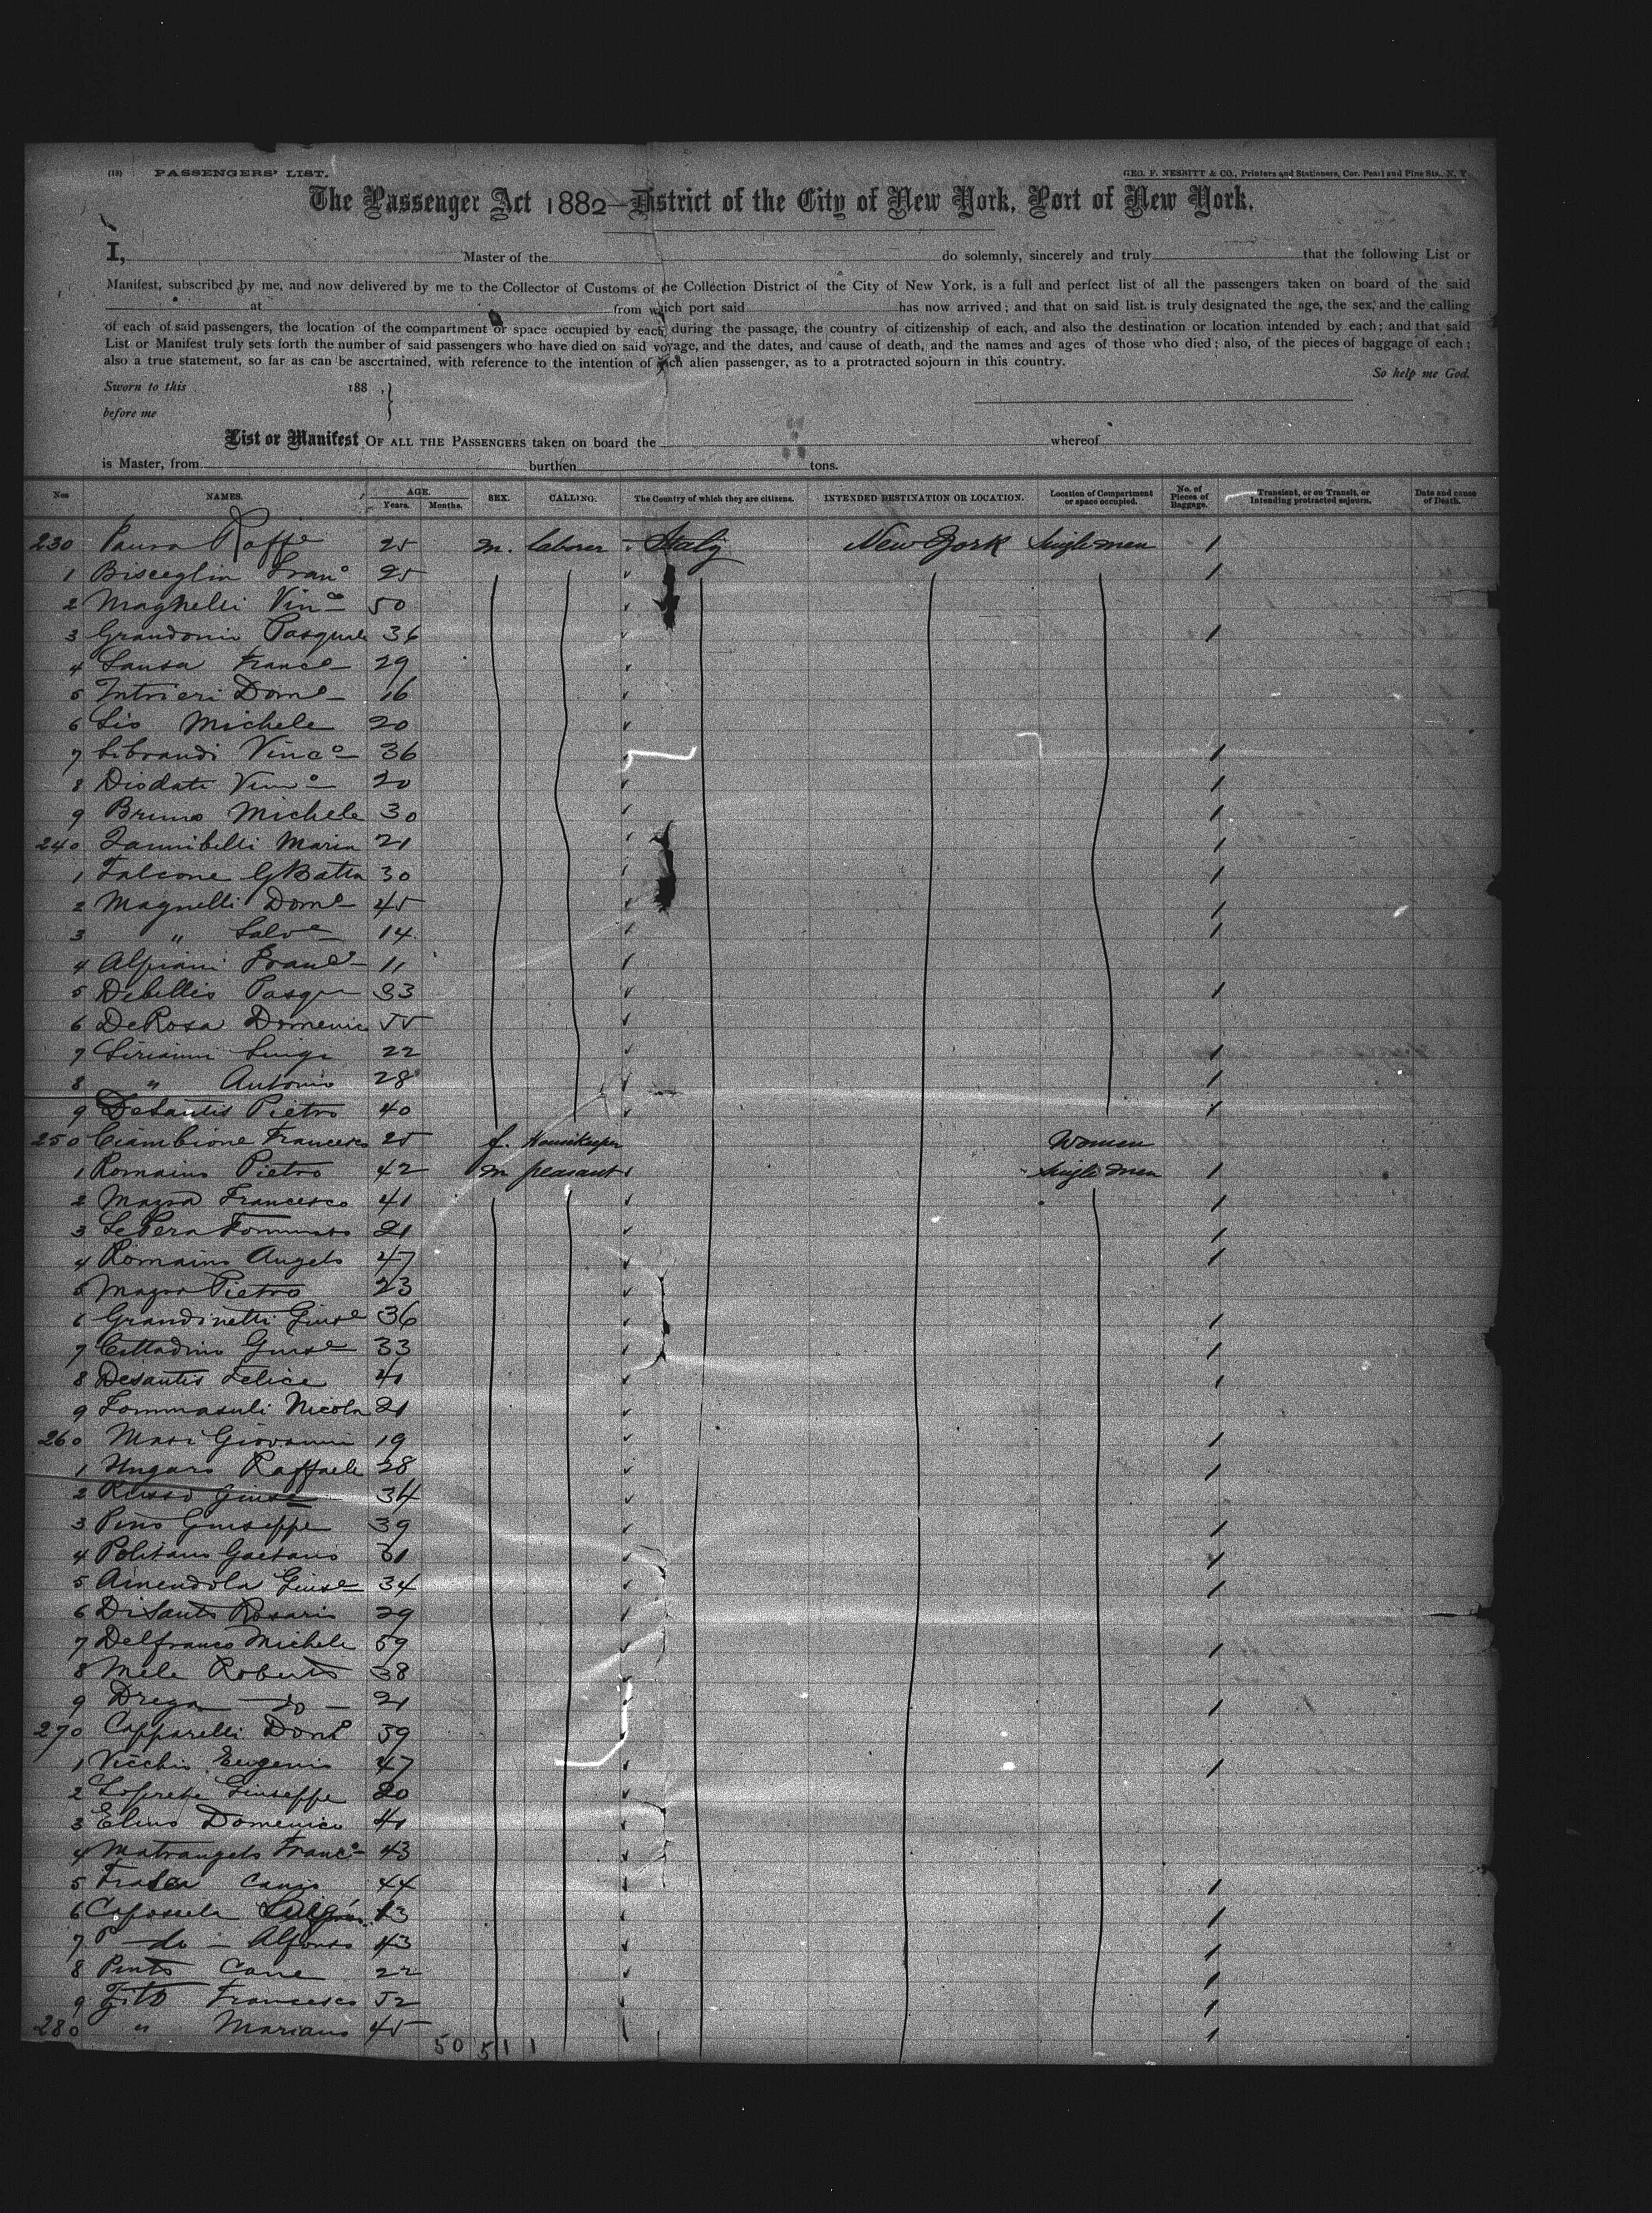 (18) PASSENGERS' LIST. GEO. F. NESBITT & CO., Printers and Stationers, Cor. Pearl and Pine Sts., N. Y.
The Passenger Act 1882—District of the City of New York, Port of New York.
I, Master of the do solemnly, sincerely and truly that the following List or
Manifest, subscribed by me, and now delivered by me to the Collector of Customs of the Collection District of the City of New York, is a full and perfect list of all the passengers taken on board of the said
at from which port said has now arrived; and that on said list is truly designated the age, the sex, and the calling
of each of said passengers, the location of the compartment or space occupied by each during the passage, the country of citizenship of each, and also the destination or location intended by each; and that said
List or Manifest truly sets forth the number of said passengers who have died on said voyage, and the dates, and cause of death, and the names and ages of those who died; also, of the pieces of baggage of each;
also a true statement, so far as can be ascertained, with reference to the intention of each alien passenger, as to a protracted sojourn in this country.
So help me God.
Sworn to this 188
before me
List or Manifest OF ALL THE PASSENGERS taken on board the whereof
is Master, from burthen tons.
Nos NAMES. AGE. Years. Months. SEX. CALLING. The Country of which they are citizens. INTENDED DESTINATION OR LOCATION. Location of Compartment or space occupied. No. of Pieces of Baggage. Transient, or on Transit, or Intending protracted sojourn. Date and cause of Death.
230 Paura Raffe 25 m. laborer Italy New York Single men 1
1 Bisceglia Fran° 25 1
2 Magnelli Vin 50
3 Grandoni Pasquale 36 1
4 Sansa Franc 29
5 Intrieri Dom 16
6 Lio Michele 20
7 Librandi Vinc° 36 1
8 Diodati Vin° 20 1
9 Bruno Michele 30 1
240 Zannibelli Maria 21 1
1 Falcone GBatta 30 1
2 Magnelli Dom 45 1
3 " Salve 14 1
4 Alfiani Franc 11
5 Debellis Pasqu 33 1
6 DeRosa Domenic 55
7 Sirianni Luigi 22 1
8 " Antonio 28 1
9 DeSantis Pietro 40 1
250 Ciambione Francesco 25 f. Housekeeper Women
1 Romano Pietro 42 m peasant Single men 1
2 Mazza Francesco 41 1
3 LePera Tommaso 21 1
4 Romano Angelo 47 1
5 Mazza Pietro 23
6 Grandinetti Giuse 36 1
7 Cittadino Giuse 33 1
8 Desantis Felice 41 1
9 Tommasuli Nicola 21
260 Masi Giovanni 19 1
1 Ungaro Raffaele 28 1
2 Russo Giuse 34
3 Pino Giuseppe 39 1
4 Politano Gaetano 31 1
5 Amendola Giuse 34 1
6 DiSanto Rosario 29
7 Delfranco Michele 59 1
8 Mele Roberto 38
9 Drega do 21 1
270 Capparelli Dom 39
1 Vecchio Eugenio 47 1
2 Loprete Giuseppe 20
3 Elmo Domenico 41
4 Matrangelo Franc° 43
5 Frasca 44 1
6 Caposcela 1
7 do Alfonso 43 1
8 Pinto 22 1
9 Tito Francesco 52 1
280 " Mariano 45 1
50 51 1